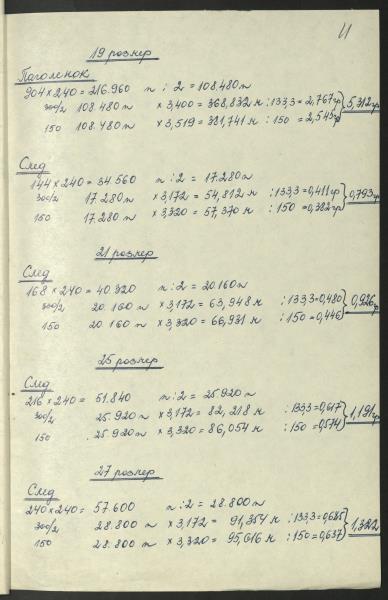 11
19 розмер
Паголенок
904 × 240 = 216.960 п : 2 = 108.480п
300/2 108.480п × 3,400 = 368,832 н : 133,3 = 2,767гр
150 108.480п × 3,519 = 381,741 н : 150 = 2,545гр
5,312гр
След
144 × 240 = 34.560 п : 2 = 17.280п
300/2 17.280 п × 3,172 = 54,812 н : 133,3 = 0,411гр
150 17.280 п × 3,320 = 57,370 н : 150 = 0,382гр
0,793гр
21 розмер
След
168 × 240 = 40320 п : 2 = 20.160п
300/2 20.160 п × 3,172 = 63,948 н : 133,3 = 0,480
150 20.160 п × 3,320 = 66,931 н : 150 = 0,446
0,926гр
25 розмер
След
216 × 240 = 51.840 п : 2 = 25.920п
300/2 25.920 п × 3,172 = 82,218 н : 133,3 = 0,617
150 25.920 п × 3,320 = 86,054 н : 150 = 0,574
1,191гр
27 розмер
След
240 × 240 = 57.600 п : 2 = 28.800п
300/2 28.800 п × 3,172 = 91,354 н : 133,3 = 0,685
150 28.800 п × 3,320 = 95,616 н : 150 = 0,637
1,322